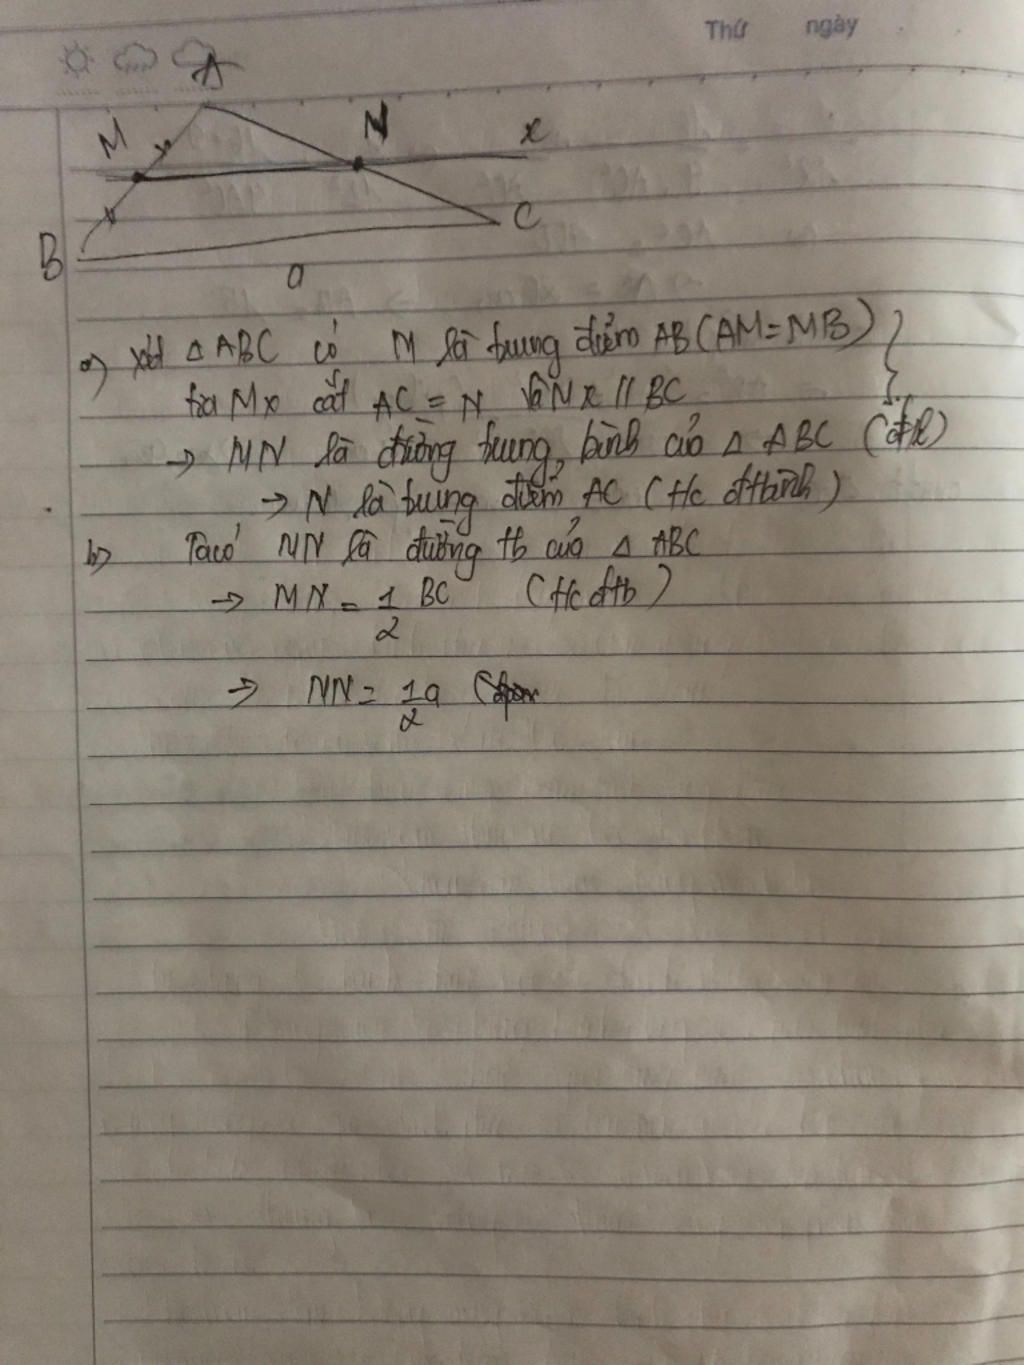 Thứ ngày
A
M
N
x
B
C
a
a) xét △ ABC có M là trung điểm AB (AM=MB)
tia Mx cắt AC = N và Mx // BC
→ MN là đường trung bình của △ ABC (đ/l)
→ N là trung điểm AC (t/c đtbình)
b) Ta có MN là đường tb của △ ABC
→ MN = 1/2 BC (t/c đtb)
→ MN = 1/2 a